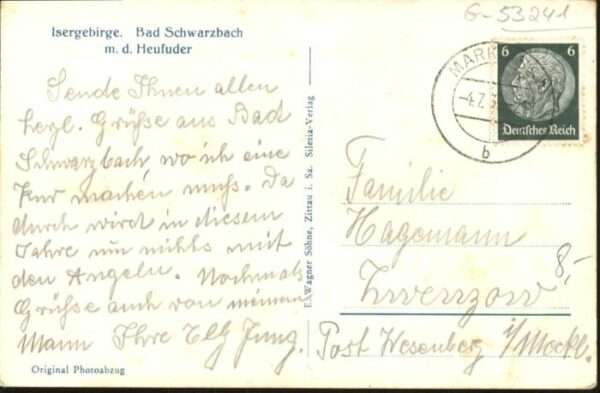 G-53241
Isergebirge. Bad Schwarzbach
m. d. Heufuder
Sende Ihnen allen
herzl. Grüße aus Bad
Schwarzbach, wo ich eine
Kur machen muß. Da
durch wird in diesem
Jahre nun nichts mit
den Angeln. Nochmals
Grüße auch von meinem
Mann Ihre Elly Jung.
Original Photoabzug
E.A. Wagner Söhne, Zittau i. Sa. Silesia-Verlag
6 6
Deutsches Reich
MARK
4.7.3
b
Familie
Hagemann
Zwenzow
8,-
Post Wesenberg i/Meckl.